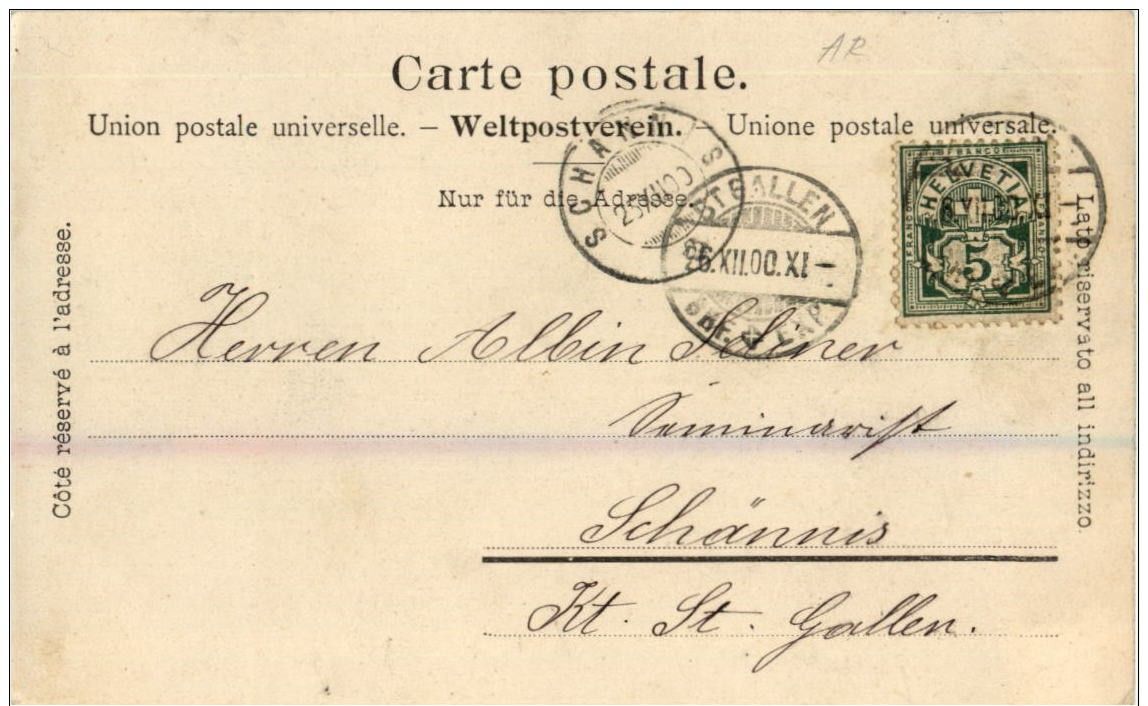 AR
Carte postale.
Union postale universelle. – Weltpostverein. – Unione postale universale.
Nur für die Adresse.
Côté réservé à l'adresse.
Lato riservato all indirizzo.
SCHÄNNIS
ST. GALLEN
26.XII.00.XI –
FRANCO
HELVETIA
FRANCO
FRANCO
5
Herren Albin
Seminarist
Schännis
Kt. St. Gallen.